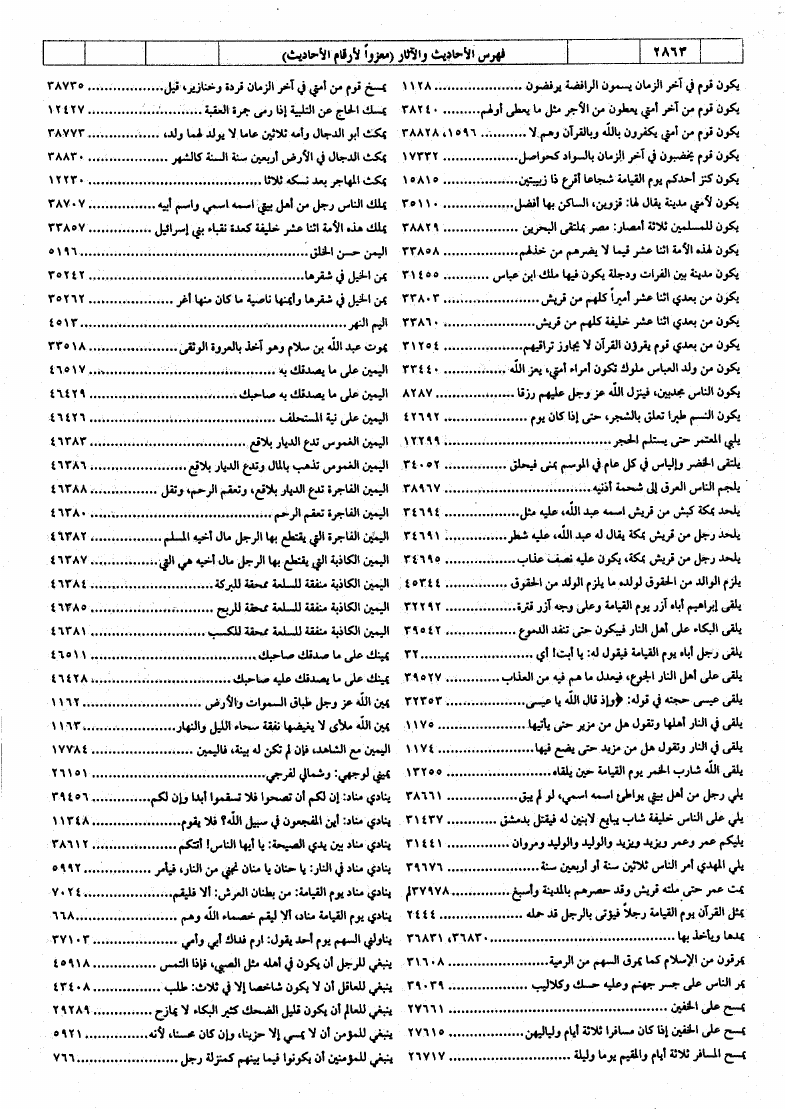 ٢٨٦٣
فهرس الأحاديث والآثار (معزواً لأرقام الأحاديث)
يكون قوم في آخر الزمان يسمون الرافضة يرفضون ........ ١١٢٨
يكون قوم من آخر أمتي يعطون من الأجر مثل ما يعطى أولهم ........ ٣٨٢٤٠
يكون قوم من أمتي يكفرون بالله وبالقرآن وهم لا ........ ١٥٩٦، ٣٨٨٢٨
يكون قوم يخضبون في آخر الزمان بالسواد كحواصل ........ ١٧٣٣٢
يكون كنز أحدكم يوم القيامة شجاعا أقرع ذا زبيبتين ........ ١٥٨١٥
يكون لأمتي مدينة يقال لها: قزوين، الساكن بها أفضل ........ ٣٥١١٠
يكون للمسلمين ثلاثة أمصار: مصر بملتقى البحرين ........ ٣٨٨٢٩
يكون لهذه الأمة اثنا عشر قيما لا يضرهم من خذلهم ........ ٣٣٨٥٨
يكون مدينة بين الفرات ودجلة يكون فيها ملك ابن عباس ........ ٣١٤٥٥
يكون من بعدي اثنا عشر أميراً كلهم من قريش ........ ٣٣٨٠٣
يكون من بعدي اثنا عشر خليفة كلهم من قريش ........ ٣٣٨٦٠
يكون من بعدي قوم يقرؤن القرآن لا يجاوز تراقيهم ........ ٣١٢٥٤
يكون من ولد العباس ملوك تكون أمراء أمتي، يعز الله ........ ٣٣٤٤٠
يكون الناس مجدبين، فينزل الله عز وجل عليهم رزقا ........ ٨٢٨٧
يكون النسم طيرا تعلق بالشجر، حتى إذا كان يوم ........ ٤٢٦٩٢
يلبي المعتمر حتى يستلم الحجر ........ ١٢٢٩٩
يلتقى الخضر وإلياس في كل عام في الموسم بمنى فيحلق ........ ٣٤٠٥٢
يلجم الناس العرق إلى شحمة أذنيه ........ ٣٨٩٦٧
يلحد بمكة كبش من قريش اسمه عبد الله، عليه مثل ........ ٣٤٦٩٤
يلحد رجل من قريش بمكة يقال له عبد الله، عليه شطر ........ ٣٤٦٩١
يلحد رجل من قريش بمكة، يكون عليه نصف عذاب ........ ٣٤٦٩٥
يلزم الوالد من الحقوق لولده ما يلزم الولد من الحقوق ........ ٤٥٣٤٤
يلقى إبراهيم أباه آزر يوم القيامة وعلى وجه آزر قترة ........ ٣٢٢٩٢
يلقى البكاء على أهل النار فيبكون حتى تنفد الدموع ........ ٣٩٥٤٢
يلقى رجل أباه يوم القيامة فيقول له: يا أبت! أي ........ ٣٢
يلقى على أهل النار الجوع، فيعدل ما هم فيه من العذاب ........ ٣٩٥٢٧
يلقى عيسى حجته في قوله: ﴿وإذ قال الله يا عيسى ........ ٣٢٣٥٣
يلقى في النار أهلها وتقول هل من مزير حتى يأتيها ........ ١١٧٥
يلقى في النار وتقول هل من مزيد حتى يضع فيها ........ ١١٧٤
يلقى الله شارب الخمر يوم القيامة حين يلقاه ........ ١٣٢٥٥
يلي رجل من أهل بيتي يواطئ اسمه اسمي، لو لم يبق ........ ٣٨٦٦١
يلي على الناس خليفة شاب يبايع لابنين له فيقتل بدمشق ........ ٣١٤٣٧
يليكم عمر وعمر ويزيد ويزيد والوليد والوليد ومروان ........ ٣١٤٤١
يلي المهدي أمر الناس ثلاثين سنة أو أربعين سنة ........ ٣٩٦٧٦
يمت عمر حتى ملته قريش وقد حصرهم بالمدينة وأسبغ ........ ٣٧٩٧٨م
يمثل القرآن يوم القيامة رجلاً فيؤتى بالرجل قد حمله ........ ٢٤٤٤
يمدها ويأخذ بها ........ ٣٦٨٣٠، ٣٦٨٣١
يمرقون من الإسلام كما يمرق السهم من الرمية ........ ٣١٦٠٨
يمر الناس على جسر جهنم وعليه حسك وكلاليب ........ ٣٩٠٣٩
يمسح على الخفين ........ ٢٧٦٦١
يمسح على الخفين إذا كان مسافرا ثلاثة أيام ولياليهن ........ ٢٧٦١٥
يمسح المسافر ثلاثة أيام والمقيم يوما وليلة ........ ٢٦٧١٧
يمسخ قوم من أمتي في آخر الزمان قردة وخنازير، قيل ........ ٣٨٧٣٥
يمسك الحاج عن التلبية إذا رمى جمرة العقبة ........ ١٢٤٢٧
يمكث أبو الدجال وأمه ثلاثين عاما لا يولد لهما ولد، ........ ٣٨٧٧٣
يمكث الدجال في الأرض أربعين سنة السنة كالشهر ........ ٣٨٨٣٠
يمكث المهاجر بعد نسكه ثلاثا ........ ١٢٢٣٠
يملك الناس رجل من أهل بيتي اسمه اسمي واسم أبيه ........ ٣٨٧٠٧
يملك هذه الأمة اثنا عشر خليفة كعدة نقباء بني إسرائيل ........ ٣٣٨٥٧
اليمن حسن الخلق ........ ٥١٩٦
يمن الخيل في شقرها ........ ٣٥٢٤٢
يمن الخيل في شقرها وأيمنها ناصية ما كان منها أغر ........ ٣٥٢٦٢
اليم النهر ........ ٤٥١٣
يموت عبد الله بن سلام وهو آخذ بالعروة الوثقى ........ ٣٣٥١٨
اليمين على ما يصدقك به ........ ٤٦٥١٧
اليمين على ما يصدقك به صاحبك ........ ٤٦٤٢٩
اليمين على نية المستحلف ........ ٤٦٤٢٦
اليمين الغموس تدع الديار بلاقع ........ ٤٦٣٨٣
اليمين الغموس تذهب بالمال وتدع الديار بلاقع ........ ٤٦٣٨٦
اليمين الفاجرة تدع الديار بلاقع، وتعقم الرحم، وتقل ........ ٤٦٣٨٨
اليمين الفاجرة تعقم الرحم ........ ٤٦٣٨٠
اليمين الفاجرة التي يقتطع بها الرجل مال أخيه المسلم ........ ٤٦٣٨٢
اليمين الكاذبة التي يقتطع بها الرجل مال أخيه هي التي ........ ٤٦٣٨٧
اليمين الكاذبة منفقة للسلعة ممحقة للبركة ........ ٤٦٣٨٤
اليمين الكاذبة منفقة للسلعة ممحقة للربح ........ ٤٦٣٨٥
اليمين الكاذبة منفقة للسلعة ممحقة للكسب ........ ٤٦٣٨١
يمينك على ما صدقك صاحبك ........ ٤٦٥١١
يمينك على ما يصدقك عليه صاحبك ........ ٤٦٤٢٨
يمين الله عز وجل طباق السموات والأرض ........ ١١٦٢
يمين الله ملأى لا يغيضها نفقة سحاء الليل والنهار ........ ١١٦٣
اليمين مع الشاهد، فإن لم تكن له بينة، فاليمين ........ ١٧٧٨٤
يميني لوجهي: وشمالي لفرجي ........ ٢٦١٥١
ينادي مناد: إن لكم أن تصحوا فلا تسقموا أبدا وإن لكم ........ ٣٩٤٥٦
ينادي مناد: أين المفجعون في سبيل الله؟ فلا يقوم ........ ١١٣٤٨
ينادي مناد بين يدي الصيحة: يا أيها الناس! أتتكم ........ ٣٨٦١٢
ينادي مناد في النار: يا حنان يا منان نجني من النار، فيأمر ........ ٥٩٩٢
ينادي مناد يوم القيامة: من بطنان العرش: ألا فليقم ........ ٧٠٢٤
ينادي يوم القيامة مناد، ألا ليقم خصماء الله وهم ........ ٦٦٨
يناولني السهم يوم أحد يقول: ارم فداك أبي وأمي ........ ٣٧١٠٣
ينبغي للرجل أن يكون في أهله مثل الصبي، فإذا التمس ........ ٤٥٩١٨
ينبغي للعاقل أن لا يكون شاخصا إلا في ثلاث: طلب ........ ٤٣٤٠٨
ينبغي للعالم أن يكون قليل الضحك كثير البكاء لا يمازح ........ ٢٩٢٨٩
ينبغي للمؤمن أن لا يمسي إلا حزينا، وإن كان محسنا، لأنه ........ ٥٩٢١
ينبغي للمؤمنين أن يكونوا فيما بينهم كمنزلة رجل ........ ٧٦٦